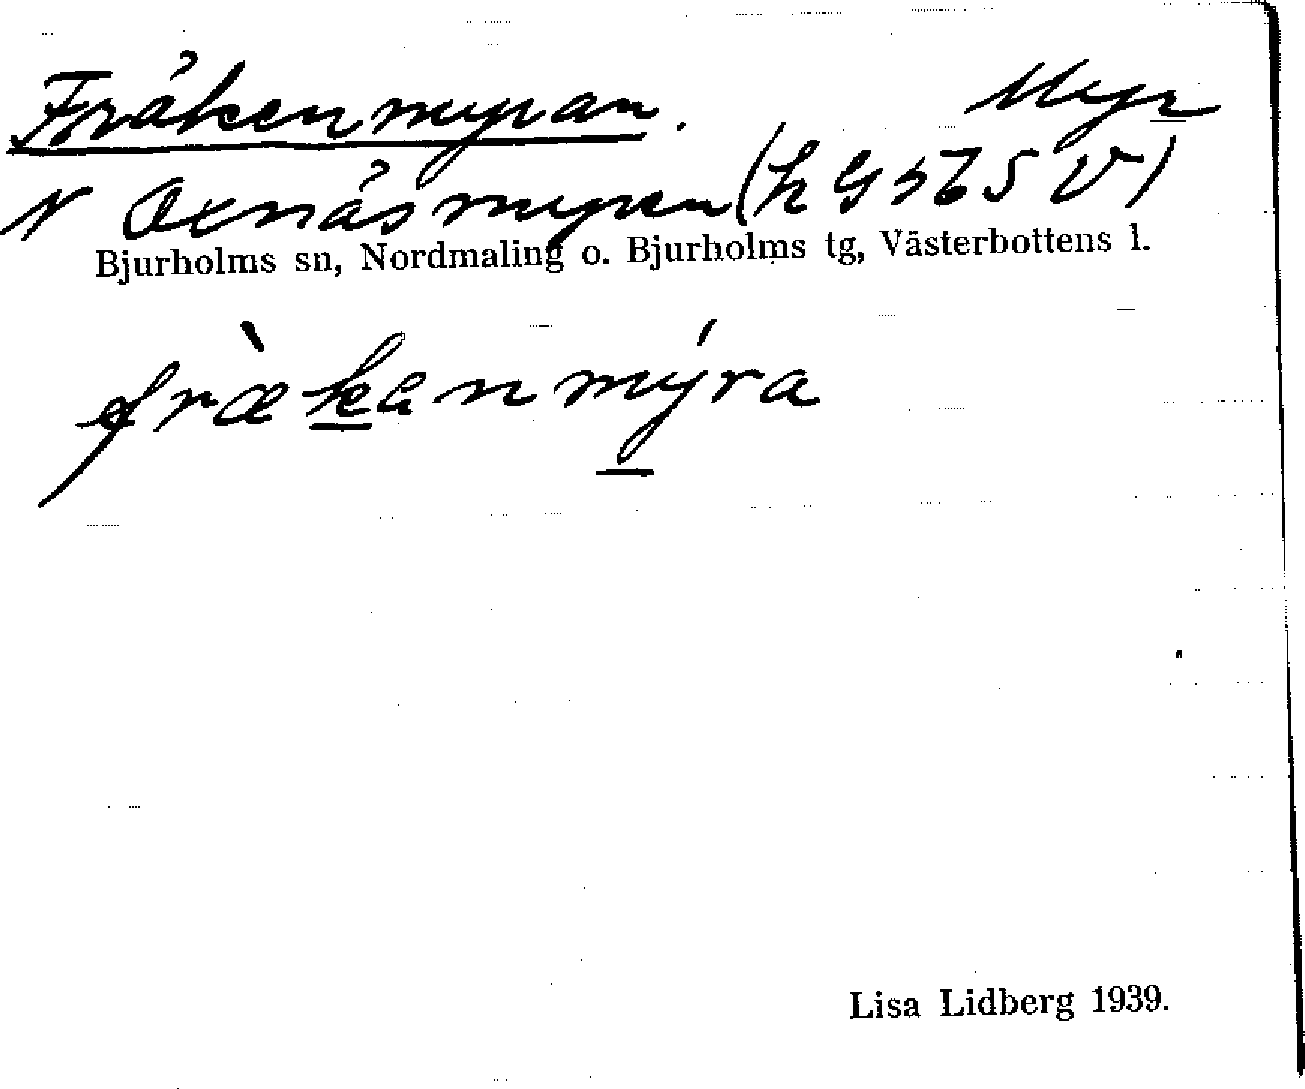 Fräkenmyran. Myr
N Oxnäsmyran (h
Bjurholms sn, Nordmaling o. Bjurholms tg, Västerbottens l.
fræ̀kanmýra
Lisa Lidberg 1939.